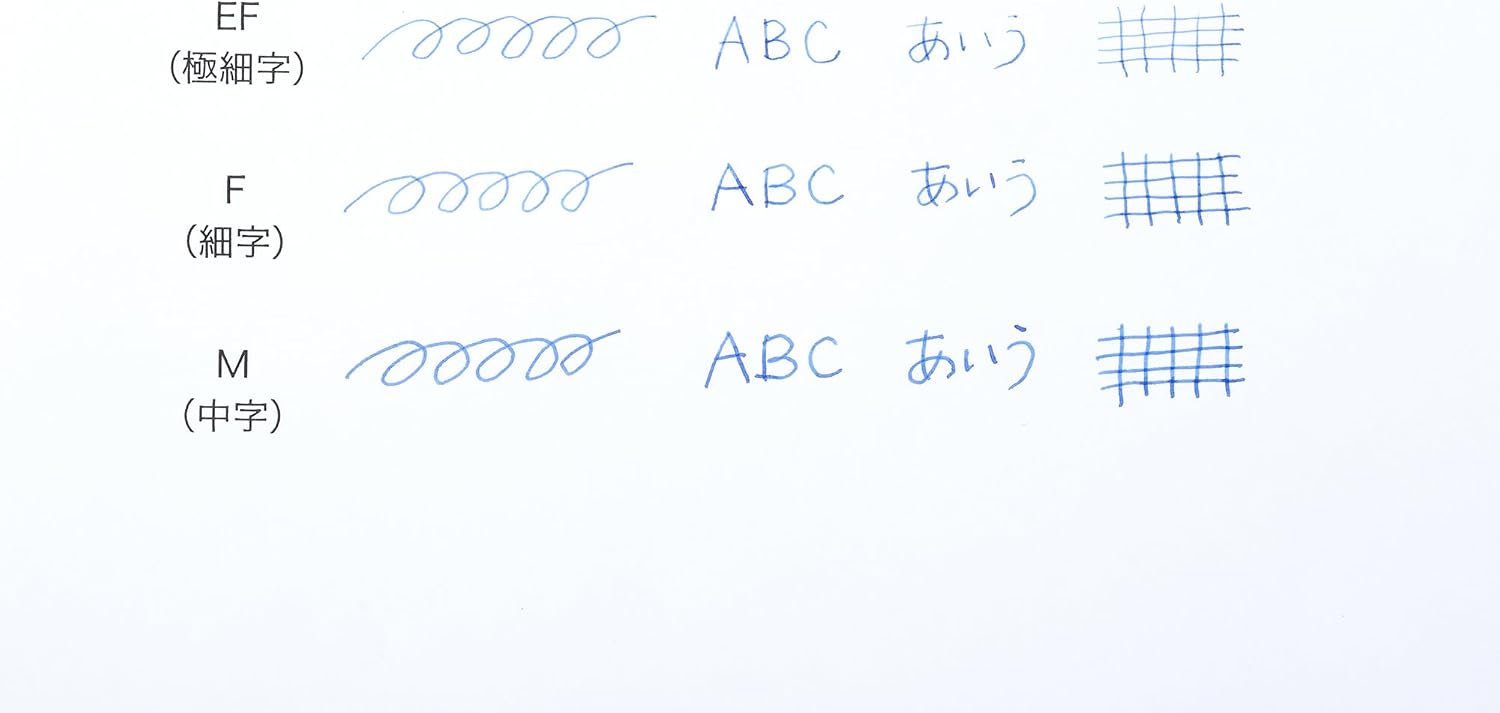 EF ABC あいう
(極細字)
F ABC あいう
(細字)
M ABC あいう
(中字)